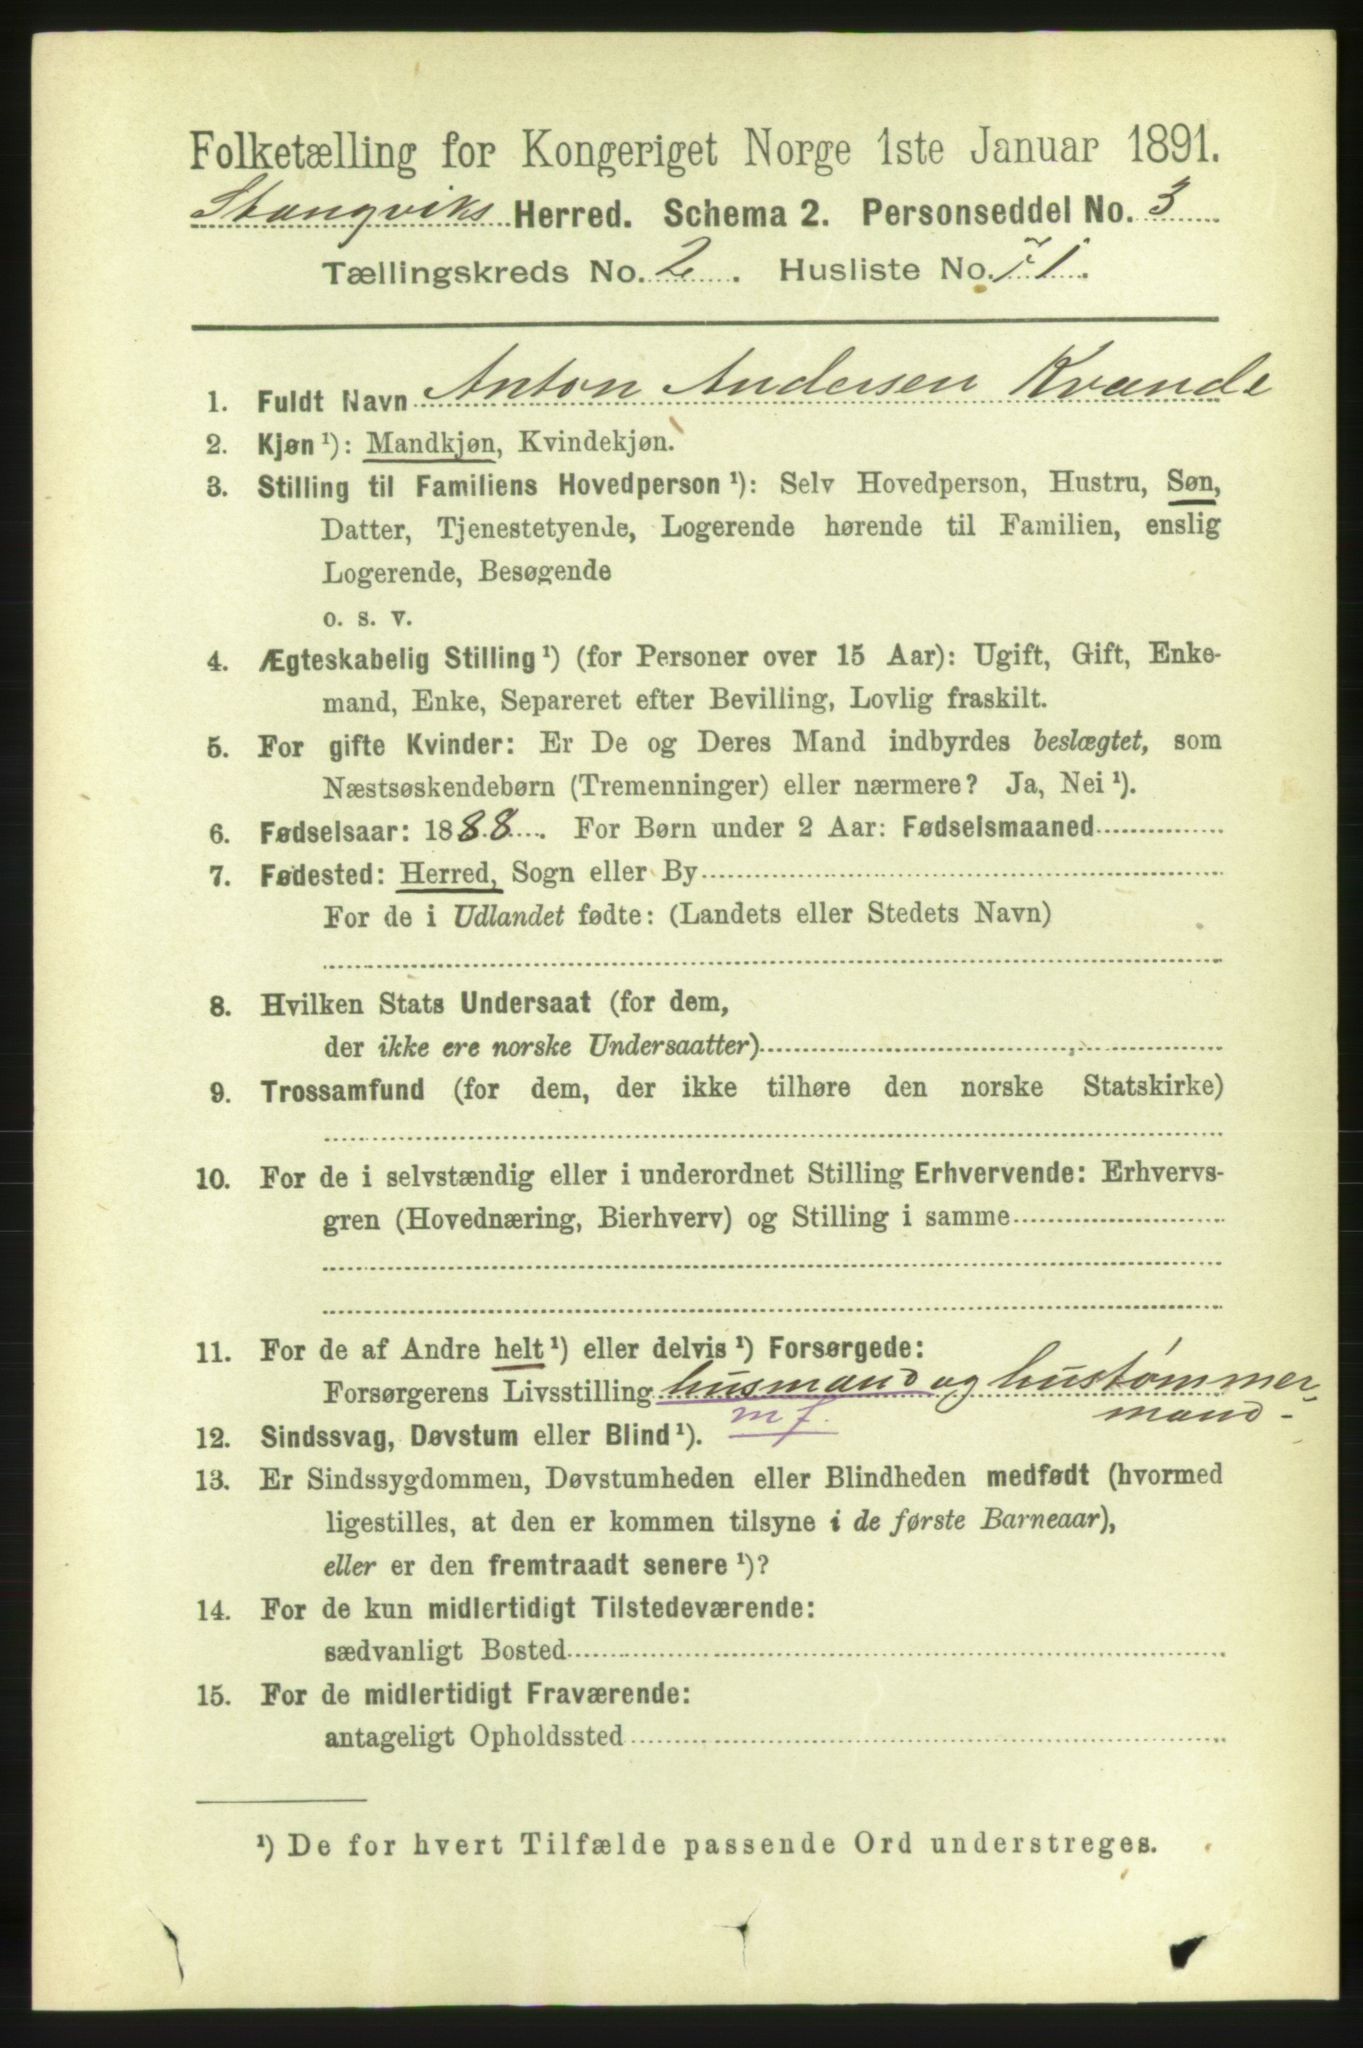 Folketælling for Kongeriget Norge 1ste Januar 1891.
Stangviks Herred. Schema 2. Personseddel No. 3
Tællingskreds No. 2. Husliste No. 71.
1. Fuldt Navn Anton Andersen Kvande
2. Kjøn ¹): Mandkjøn, Kvindekjøn.
3. Stilling til Familiens Hovedperson ¹): Selv Hovedperson, Hustru, Søn,
Datter, Tjenestetyende, Logerende hørende til Familien, enslig
Logerende, Besøgende
o. s. v.
4. Ægteskabelig Stilling ¹) (for Personer over 15 Aar): Ugift, Gift, Enke-
mand, Enke, Separeret efter Bevilling, Lovlig fraskilt.
5. For gifte Kvinder: Er De og Deres Mand indbyrdes beslægtet, som
Næstsøskendebørn (Tremenninger) eller nærmere? Ja, Nei ¹).
6. Fødselsaar: 1888. For Børn under 2 Aar: Fødselsmaaned
7. Fødested: Herred, Sogn eller By
For de i Udlandet fødte: (Landets eller Stedets Navn)
8. Hvilken Stats Undersaat (for dem,
der ikke ere norske Undersaatter)
9. Trossamfund (for dem, der ikke tilhøre den norske Statskirke)
10. For de i selvstændig eller i underordnet Stilling Erhvervende: Erhvervs-
gren (Hovednæring, Bierhverv) og Stilling i samme
11. For de af Andre helt ¹) eller delvis ¹) Forsørgede:
Forsørgerens Livsstilling husmand og hustømmer-
mf. mand -
12. Sindssvag, Døvstum eller Blind ¹).
13. Er Sindssygdommen, Døvstumheden eller Blindheden medfødt (hvormed
ligestilles, at den er kommen tilsyne i de første Barneaar),
eller er den fremtraadt senere ¹)?
14. For de kun midlertidigt Tilstedeværende:
sædvanligt Bosted
15. For de midlertidigt Fraværende:
antageligt Opholdssted
¹) De for hvert Tilfælde passende Ord understreges.